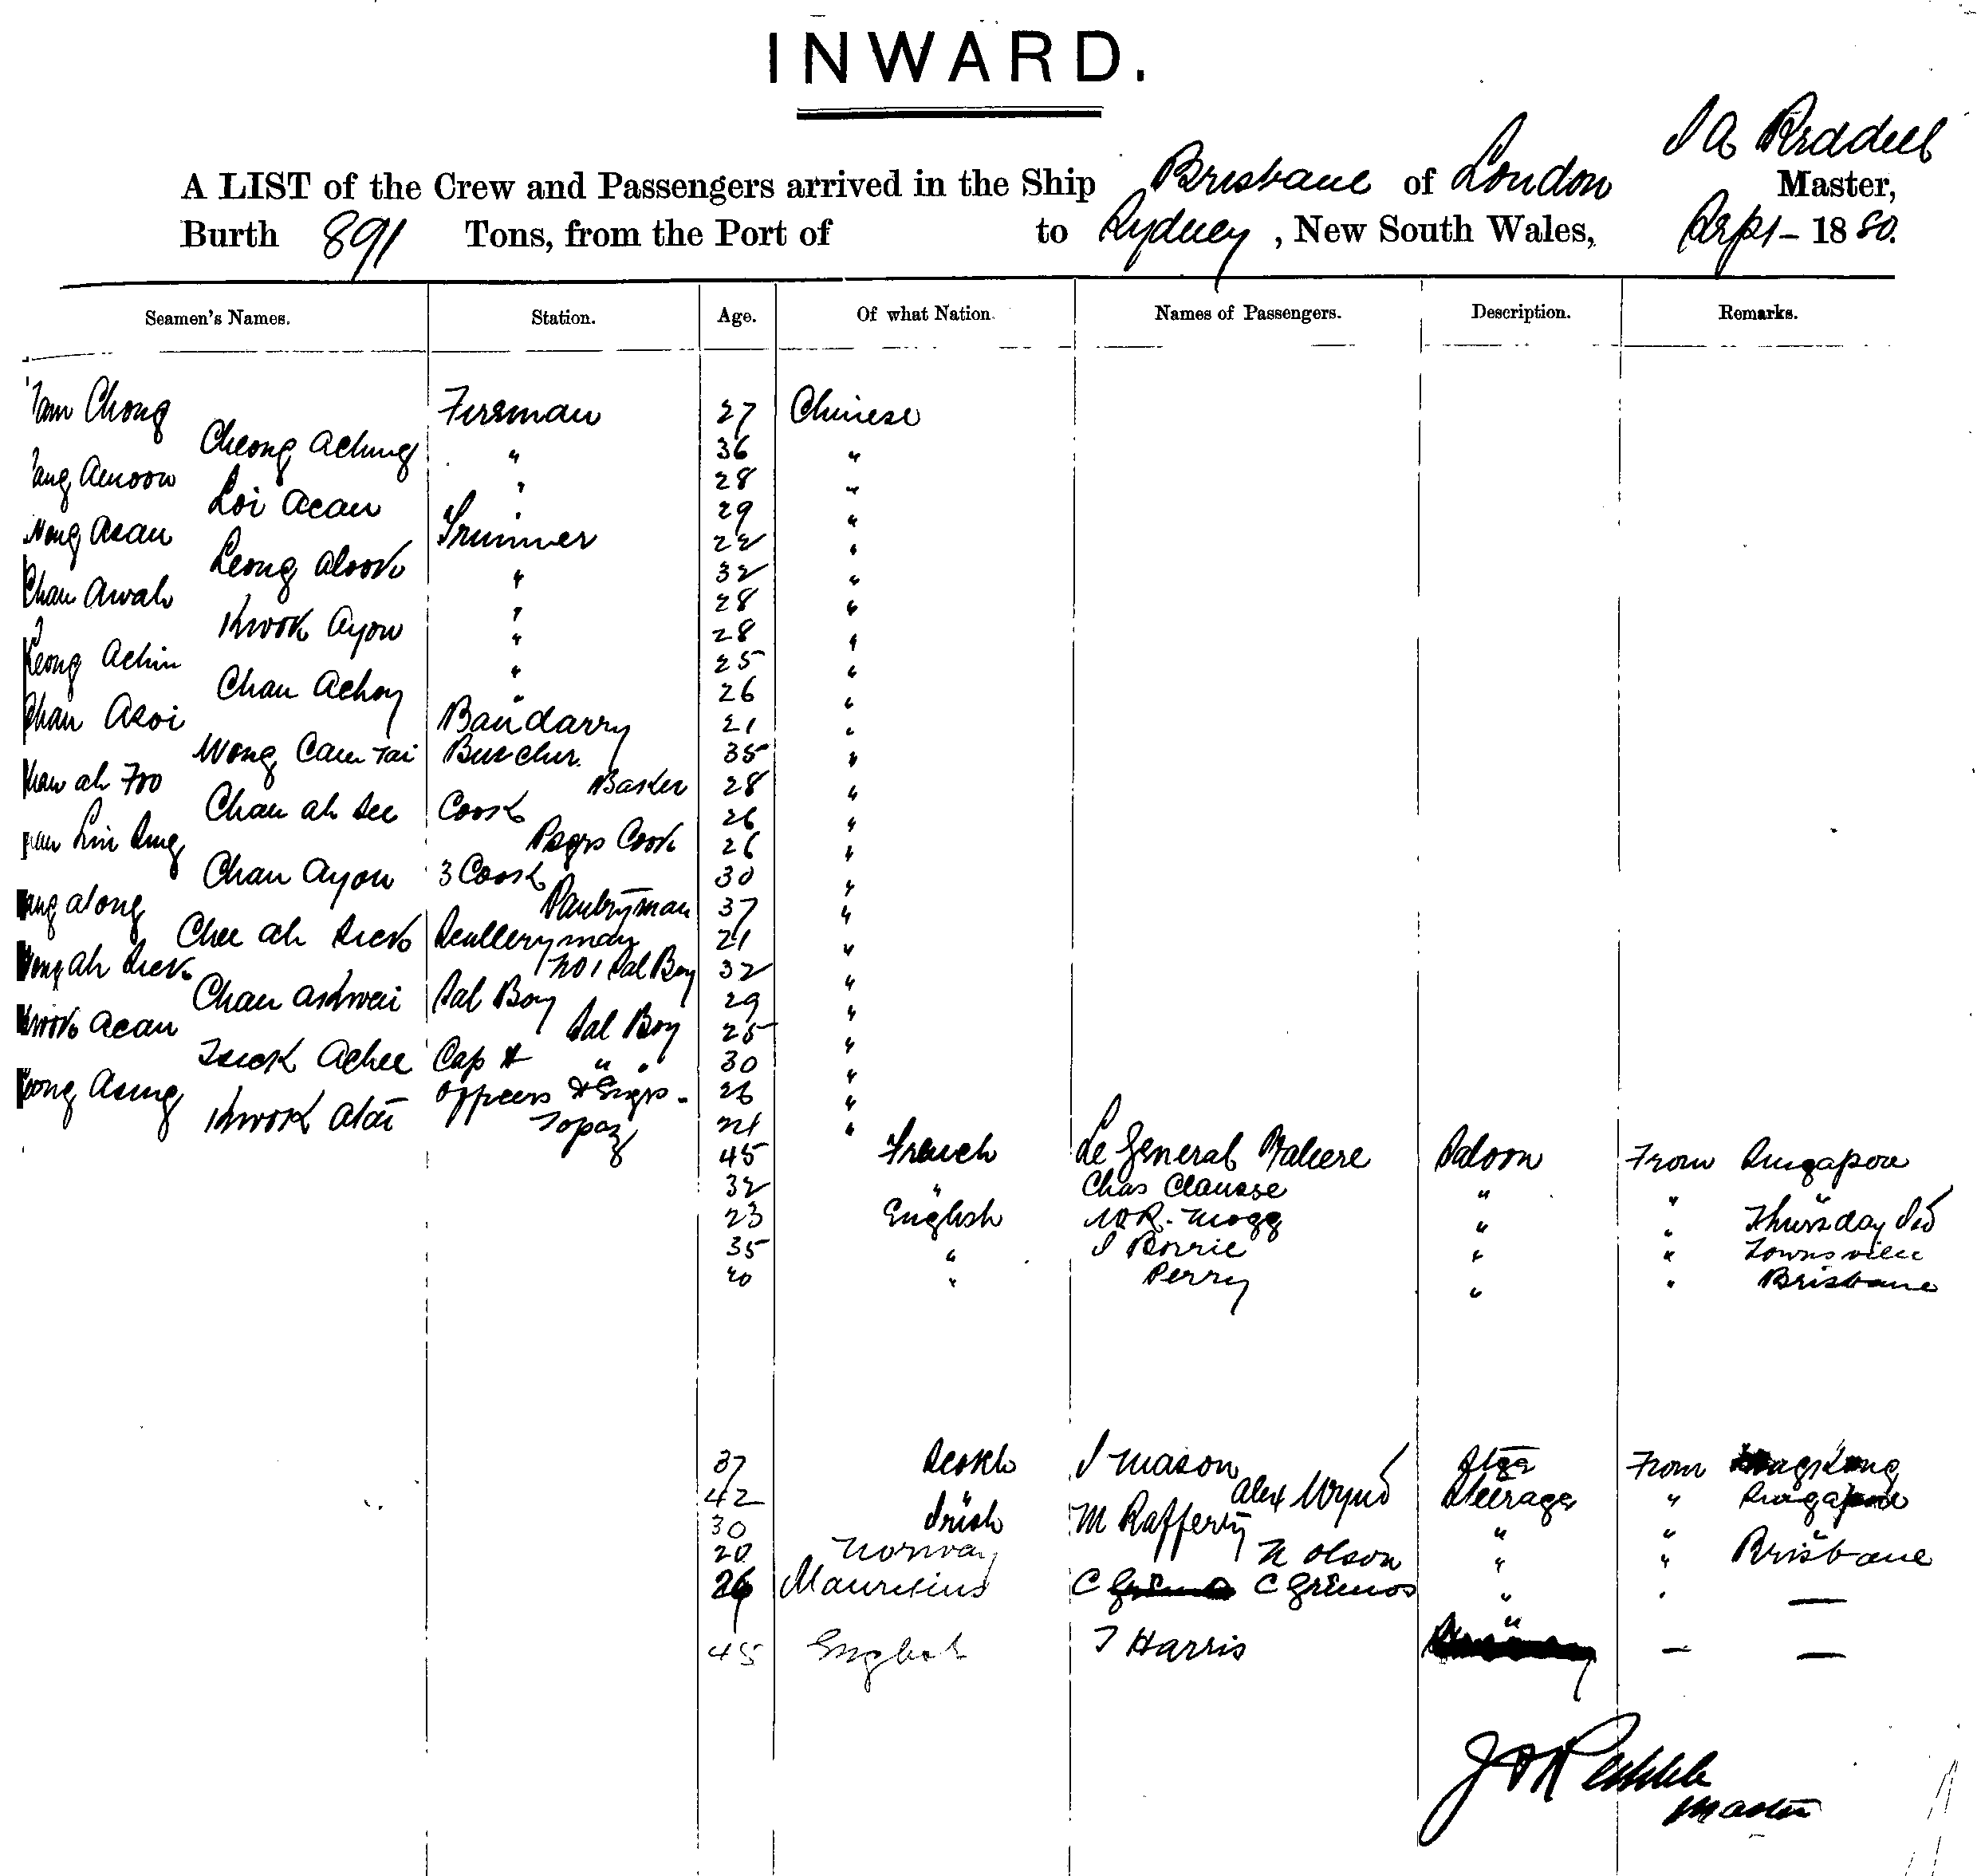 INWARD.
A LIST of the Crew and Passengers arrived in the Ship Brisbane of London J A Reddell Master,
Burth 891 Tons, from the Port of to Sydney, New South Wales, Sept - 1880.
Seamen's Names. Station. Age. Of what Nation. Names of Passengers. Description. Remarks.
Chong Fireman 27 Chinese
Cheong Aching " 36 "
Amoow " 28 "
Loi Acan " 29 "
Wong Asan Trimmer 22 "
Leong Alook " 32 "
Chan Awah " 28 "
Kwok Ayow " 28 "
Leong Achin " 25 "
Chan Achoy " 26 "
Chan Asoi Bandarry 21 "
Wong Cam Tai Butcher 35 "
Chan ah Foo Baker 28 "
Chan ah See Cook 26 "
Chan Lin Sing Psgrs Cook 26 "
Chan Ayow 3 Cook 30 "
along Pantryman 37 "
Chee ah Sick Scullery man 21 "
Wong Ah Sick No 1 Sal Boy 32 "
Chan Askwai Sal Boy 29 "
Kwok Acan Sal Boy 25 "
Tsick Achee Cap " " 30 "
Leong Asing Officers & Engrs. 26 "
Kwok Atai Topaz 21 "
45 French Le General Saloon From Singapore
32 " Chas Clausse " "
23 English W R. Mogg " " Thursday Isd
35 " J Borrie " " Townsville
40 " Perry " " Brisbane
37 Scotch J Mason Stge From Hongkong
42 Alex Wynd Steerage " Singapore
30 Irish M Rafferty " "
20 Norway N Olson " " Brisbane
26 Mauritius C C Grienos " " —
45 English T Harris " — —
Master